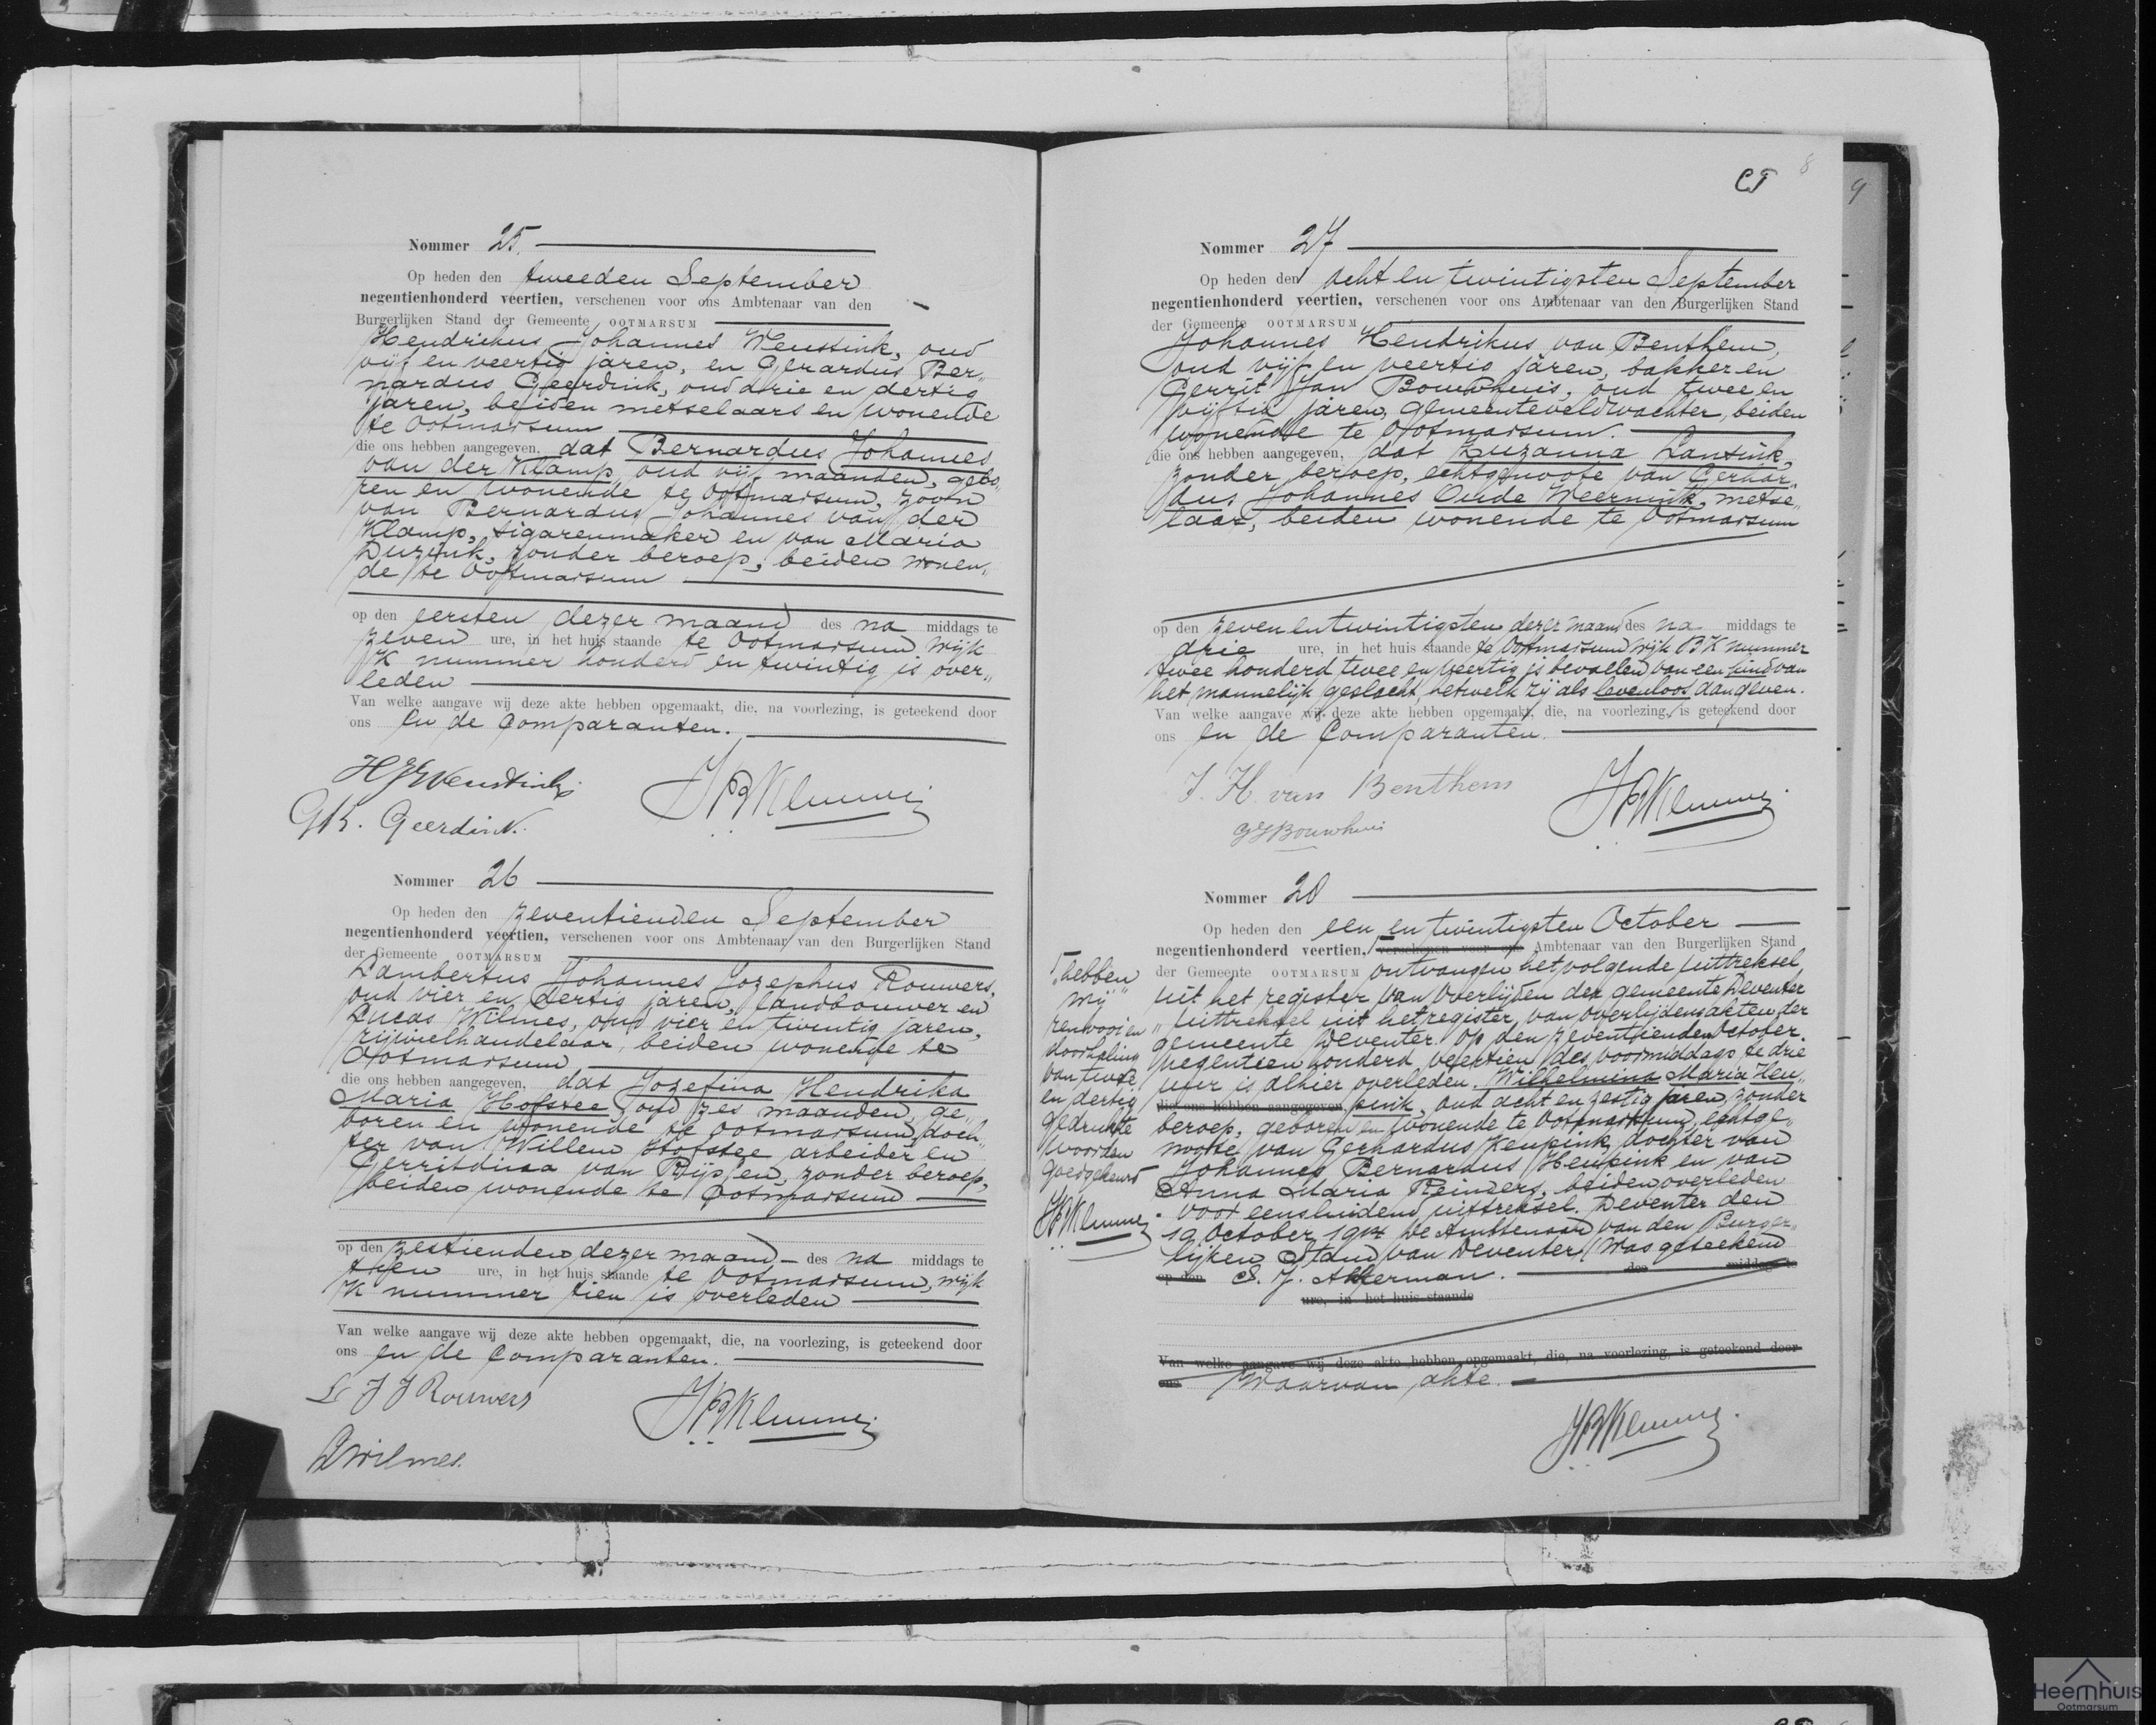 Nommer 25.
Op heden den tweeden September
negentienhonderd veertien, verschenen voor ons Ambtenaar van den
Burgerlijken Stand der Gemeente OOTMARSUM
Hendrikus Johannes Weustink, oud
vijf en veertig jaren, en Gerardus Ber„
nardus Geerdink, oud drie en dertig
jaren, beiden metselaars en wonende
te Ootmarsum
die ons hebben aangegeven, dat Bernardus Johannes
van der Klamp, oud vijf maanden, gebo„
ren en wonende te Ootmarsum, zoon
van Bernardus Johannes van der
Klamp, sigarenmaker en van Maria
zonder beroep, beiden wonen„
de te Ootmarsum
op den eersten dezer maand des na middags te
zeven ure, in het huis staande te Ootmarsum wijk
K nummer honderd en twintig is over„
leden
Van welke aangave wij deze akte hebben opgemaakt, die, na voorlezing, is geteekend door
ons en de Comparanten.
HJWeustink
GB. Geerdink.
Nommer 26
Op heden den zeventienden September
negentienhonderd veertien, verschenen voor ons Ambtenaar van den Burgerlijken Stand
der Gemeente OOTMARSUM
Lambertus Johannes Jozephus Rouwers,
oud vier en dertig jaren, landbouwer en
Lucas Wilmes, oud vier en twintig jaren,
rijwielhandelaar, beiden wonende te
Ootmarsum
die ons hebben aangegeven, dat Jozefina Hendrika
Maria Hofstee, oud zes maanden, ge„
boren en wonende te Ootmarsum, doch„
ter van Willem Hofstee arbeider en
Gerritdina van zonder beroep,
beiden wonende te Ootmarsum
op den zestienden dezer maand des na middags te
ure, in het huis staande te Ootmarsum, wijk
K nummer tien is overleden
Van welke aangave wij deze akte hebben opgemaakt, die, na voorlezing, is geteekend door
ons en de Comparanten.
L J J Rouwers
Wilmes.
8
9
Nommer 27
Op heden den acht en twintigsten September
negentienhonderd veertien, verschenen voor ons Ambtenaar van den Burgerlijken Stand
der Gemeente OOTMARSUM
Johannes Hendrikus van Benthem,
oud vijf en veertig jaren, bakker en
Gerrit Jan Bouwhuis, oud twee en
vijftig jaren, gemeenteveldwachter, beiden
wonende te Ootmarsum.
die ons hebben aangegeven, dat Zuzanna Lansink,
zonder beroep, echtgenoote van Gerhar„
dus Johannes Oude Weernink, metse„
laar, beiden wonende te Ootmarsum
op den zevenentwintigsten dezer maand des na middags te
drie ure, in het huis staande te Ootmarsum wijk BK nummer
twee honderd twee en veertig is bevallen van een kind van
het mannelijk geslacht, hetwelk zij als levenloos aangeven.
Van welke aangave wij deze akte hebben opgemaakt, die, na voorlezing, is geteekend door
ons en de Comparanten.
J. H. van Benthem
GJBouwhuis
Nommer 28
Op heden den een en twintigsten October
negentienhonderd veertien, verschenen voor ons Ambtenaar van den Burgerlijken Stand
der Gemeente OOTMARSUM ontvangen het volgende uittreksel
uit het register van Overlijden der gemeente Deventer
„Uittreksel uit het register van overlijdensakten der
gemeente Deventer. Op den zeventienden October.
negentien honderd veertien des voormiddags te drie
uur is alhier overleden. Wilhelmina Maria Heu„
die ons hebben aangegeven, pink, oud acht en zestig jaren, zonder
beroep, geboren en wonende te Ootmarsum, echtge„
noote van Gerhardus Keupink, dochter van
Johannes Bernardus Heupink en van
Anna Maria Reinders, beiden overleden
Voor eensluidend uittreksel. Deventer den
19 October 1914 De Ambtenaar van den Burger„
lijken Stand van Deventer (Was geteekend
op den S. J. Akkerman. des middags te
ure, in het huis staande
Van welke aangave wij deze akte hebben opgemaakt, die, na voorlezing, is geteekend door
ons Waarvan akte.
„hebben
wij”
renvooi en
doorhaling
van twee
en dertig
gedrukte
woorden
goedgekeurd
Heemhuis
Ootmarsum